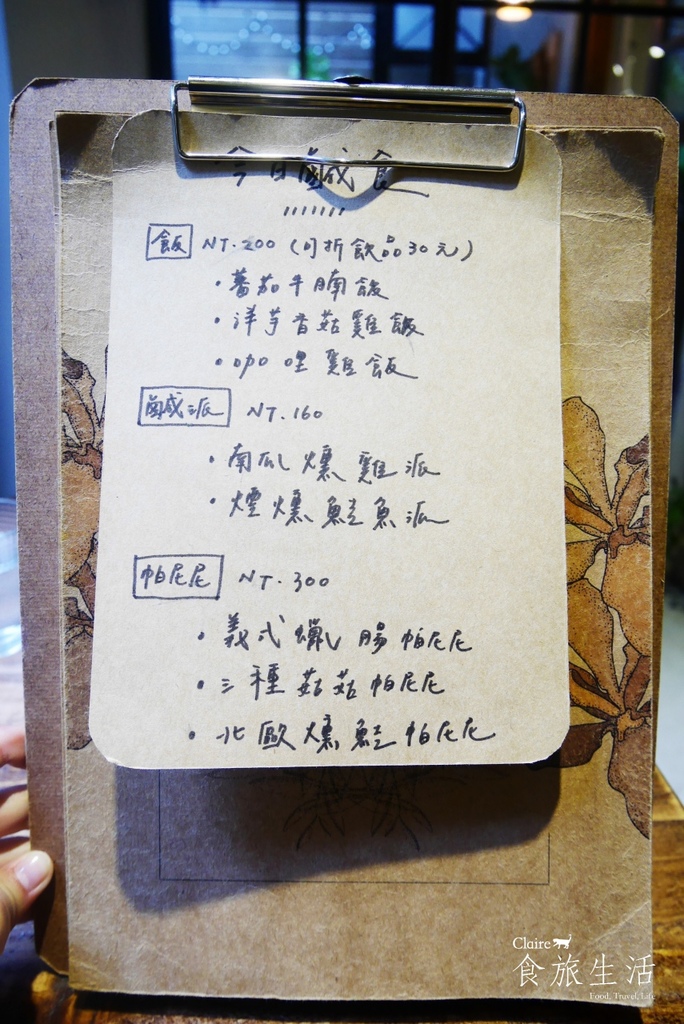 今日鹹食
飯 NT.200 (可折飲品30元)
・蕃茄牛腩飯
・洋芋香菇雞飯
・咖哩雞飯
鹹派 NT.160
・南瓜燻雞派
・煙燻鮭魚派
帕尼尼 NT.300
・義式臘腸帕尼尼
・三種菇菇帕尼尼
・北歐燻鮭帕尼尼
Claire
食旅生活
Food, Travel, Life